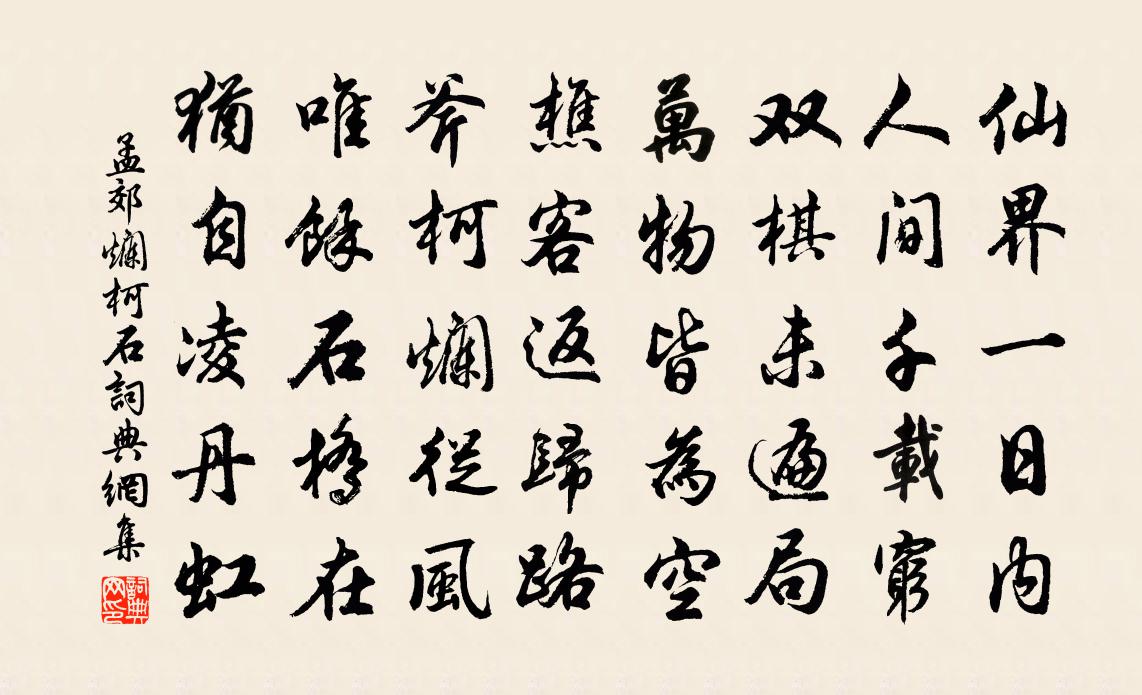 仙界一日内
人间千載窮
双棋未遍局
萬物皆為空
樵客返歸路
斧柯爛從風
唯餘石橋在
猶自凌丹虹
孟郊爛柯石詞典網集
詞典網印